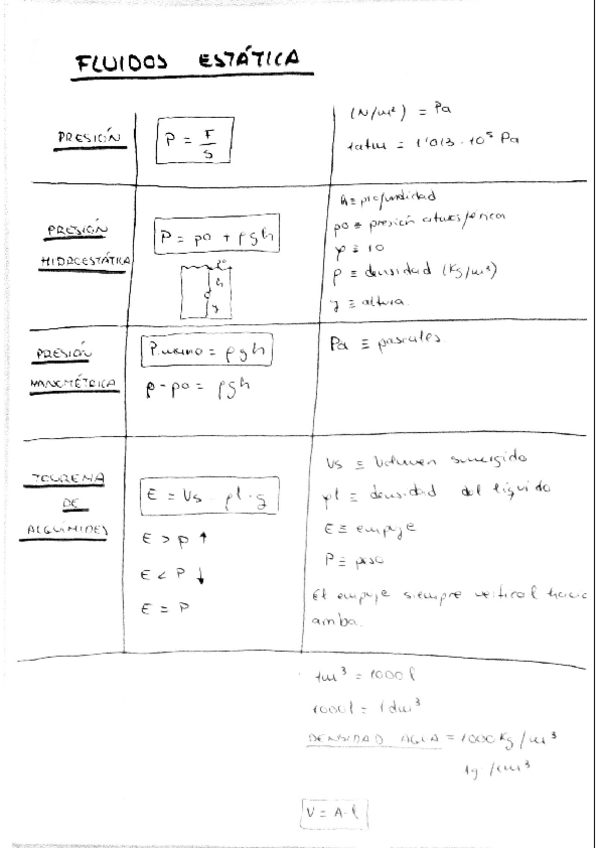 FLUIDOS ESTÁTICA
PRESIÓN
P = F/S
(N/m²) = Pa
1atm = 1'013 · 10⁵ Pa
PRESIÓN
HIDROESTÁTICA
P = po + ρgh
h
y
h ≡ profundidad
po ≡ presión atmosférica
≡ 10
ρ ≡ densidad (Kg/m³)
y ≡ altura.
PRESIÓN
MANOMÉTRICA
Pmano = ρgh
p - po = ρgh
Pa ≡ pascales
TOUREMA
DE
E = Vs · ρl · g
E > p ↑
E < P ↓
E = P
Vs ≡ Volumen sumergido
ρl ≡ densidad del líquido
E ≡ empuje
P ≡ peso
El empuje siempre vertical hacia
arriba.
1m³ = 1000 l
1000 l = 1dm³
DENSIDAD AGUA = 1000 Kg/m³
1g/cm³
V = A · l